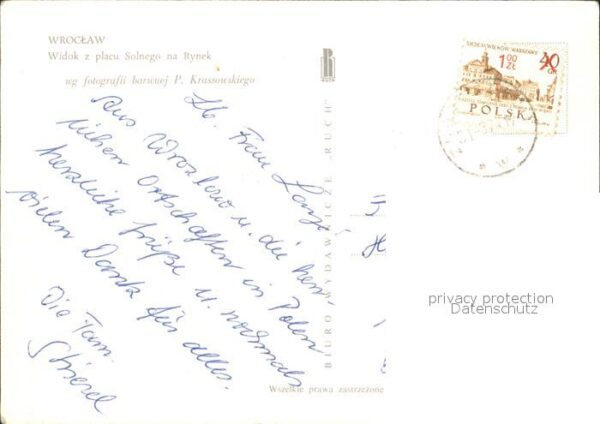 WROCŁAW
Widok z placu Solnego na Rynek
wg fotografii barwnej P. Krassowskiego
Lb. Frau
Aus Wrozlaw u. die
Ortschaften in Polen
herzliche Grüße u. nochmals
vielen Dank für alles.
Die Fam.
BIURO WYDAWNICZE „RUCH”
Wszelkie prawa zastrzeżone
SIEDEM WIEKÓW WARSZAWY
1,00 ZŁ
40 GR
POLSKA
privacy protection
Datenschutz